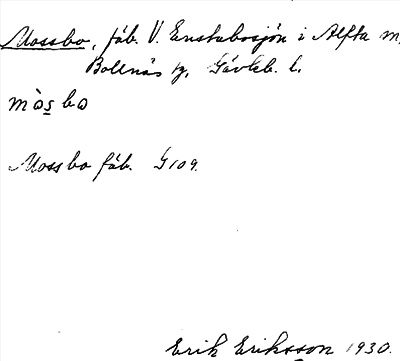 Mossbo, fäb. V. Enstabosjön i Alfta m,
Bollnäs tg, Gävleb. l.
mòs̲bo
Mossbo fäb. G109.
Erik Eriksson 1930.